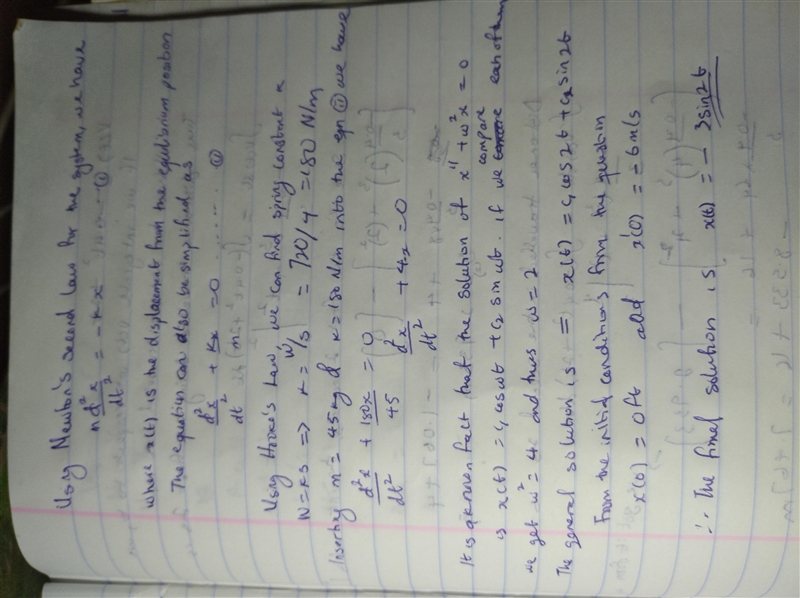 Using Newton's second Law for the system, we have
md²x/dt² = -kx ------ ①
where x(t) is the displacement from the equilibrium position
The equation can also be simplified as
d²x/dt² + kx = 0 ........ ⑪
Using Hooke's Law, we can find spring constant k
W = ks ⇒ k = W/s = 720/4 = 180 N/m
Inserting m = 45 kg and k = 180 N/m into the eqn ⑪ we have
d²x/dt² + 180x/45 = 0
d²x/dt² + 4x = 0
It is a known fact that the solution of x'' + ω²x = 0
is x(t) = c₁ cos ωt + c₂ sin ωt. if we compare each of them
we get ω² = 4 and thus ω = 2
The general solution is = x(t) = c₁ cos 2t + c₂ sin 2t
From the initial conditions from the question
x(0) = 0ft and x'(0) = -6m/s
∴ The final solution is x(t) = -3sin2t